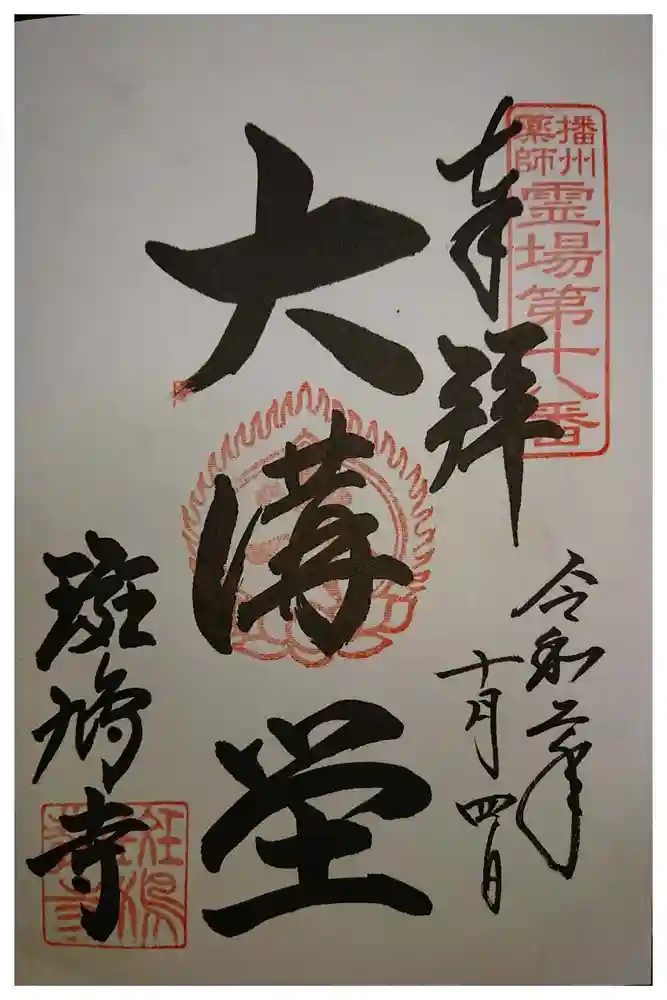 播州
薬師
霊場第十八番
奉拝
令和二年
十月四日
大講堂
斑鳩寺